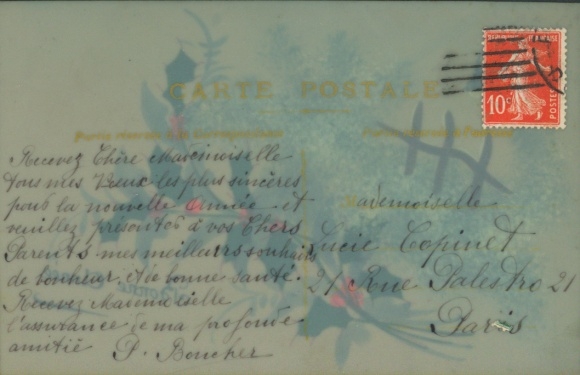 CARTE POSTALE
RÉPUBLIQUE FRANÇAISE
10c
POSTES
Recevez Chère Mademoiselle
tous mes Vœux les plus sincères
pour la nouvelle Année et
veuillez présenter à vos Chers
Parents mes meilleurs souhaits
de bonheur et de bonne santé.
Recevez Mademoiselle
l'assurance de ma profonde
amitié P. Boucher
Mademoiselle
Lucie Copinet
21 Rue Palestro 21
Paris